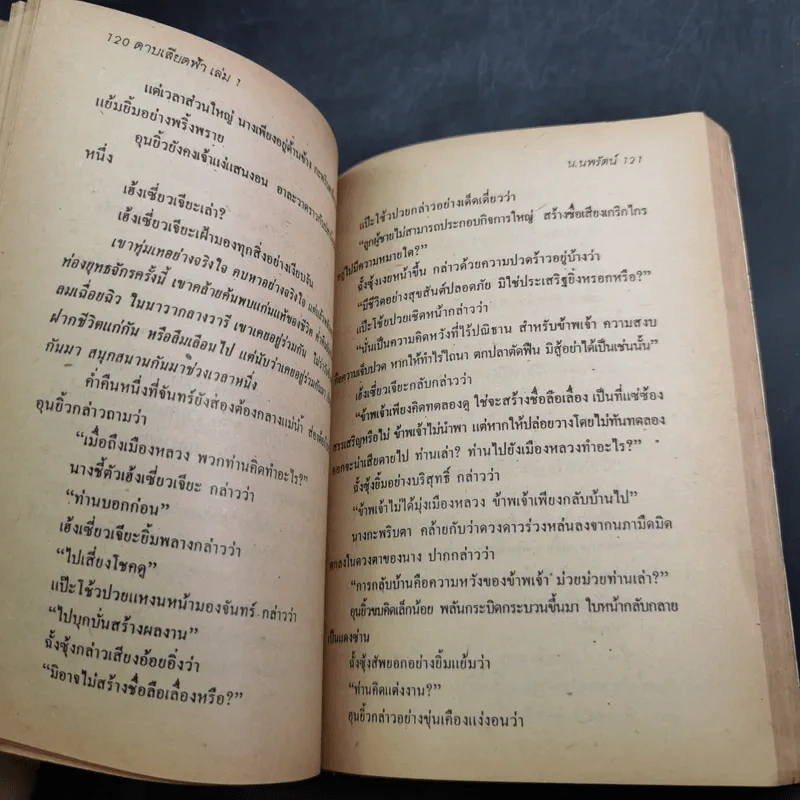 120 ดาบเสียดฟ้า เล่ม 1
แต่เวลาส่วนใหญ่ นางเพียงอยู่ด้านข้าง
แย้มยิ้มอย่างพริ้งพราย
อุนยิ้วยังคงเจ้าแง่แสนงอน
หนึ่ง
เฮ้งเซี่ยวเจียะเล่า?
เฮ้งเซี่ยวเจียะเฝ้ามองทุกสิ่งอย่างเงียบงัน
เขาทุ่มเทอย่างจริงใจ คบหาอย่างจริงใจ
ท่องยุทธจักรครั้งนี้ เขาคล้ายค้นพบแก่นแท้ของชีวิต
ลมเฉื่อยฉิว ในนาวากลางวารี เขาเคยอยู่ร่วมกัน
ฝากชีวิตแก่กัน หรือลืมเลือนไป แต่นับว่าเคยอยู่ร่วมกันมา
กันมา สนุกสนานกันมาช่วงเวลาหนึ่ง
ค่ำคืนหนึ่งที่จันทร์ยังส่องต้องกลางแม่น้ำ
อุนยิ้วกล่าวถามว่า
“เมื่อถึงเมืองหลวง พวกท่านคิดทำอะไร?”
นางชี้ตัวเฮ้งเซี่ยวเจียะ กล่าวว่า
“ท่านบอกก่อน”
เฮ้งเซี่ยวเจียะยิ้มพลางกล่าวว่า
“ไปเสี่ยงโชคดู”
แป๊ะโช้วปวยแหงนหน้ามองจันทร์ กล่าวว่า
“ไปบุกบั่นสร้างผลงาน”
ฉั้งซุ้งกล่าวเสียงอ้อยอิ่งว่า
“มิอาจไม่สร้างชื่อลือเลื่องหรือ?”
น.นพรัตน์ 121
แป๊ะโช้วปวยกล่าวอย่างเด็ดเดี่ยวว่า
“ลูกผู้ชายไม่สามารถประกอบกิจการใหญ่ สร้างชื่อเสียงเกริกไกร
ไปมีความหมายใด?”
ฉั้งซุ้งเงยหน้าขึ้น กล่าวด้วยความปวดร้าวอยู่บ้างว่า
“มีชีวิตอย่างสุขสันต์ปลอดภัย มิใช่ประเสริฐยิ่งหรอกหรือ?”
แป๊ะโช้วปวยเชิดหน้ากล่าวว่า
“นั่นเป็นความคิดหวังที่ไร้ปณิธาน สำหรับข้าพเจ้า ความสงบ
คือความเจ็บปวด หากให้ทำไร่ไถนา ตกปลาตัดฟืน มิสู้อย่าได้เป็นเช่นนั้น”
เฮ้งเซี่ยวเจียะกลับกล่าวว่า
“ข้าพเจ้าเพียงคิดทดลองดู ใช่จะสร้างชื่อลือเลื่อง เป็นที่แซ่ซ้อง
สรรเสริญหรือไม่ ข้าพเจ้าไม่นำพา แต่หากให้ปล่อยวางโดยไม่ทันทดลอง
ออกจะน่าเสียดายไป ท่านเล่า? ท่านไปยังเมืองหลวงทำอะไร?”
ฉั้งซุ้งยิ้มอย่างบริสุทธิ์ กล่าวว่า
“ข้าพเจ้าไม่ได้มุ่งเมืองหลวง ข้าพเจ้าเพียงกลับบ้านไป”
นางกะพริบตา คล้ายกับว่าดวงดาวร่วงหล่นลงจากนภามืดมิด
ตกลงในดวงตาของนาง ปากกล่าวว่า
“การกลับบ้านคือความหวังของข้าพเจ้า ม่วยม่วยท่านเล่า?”
อุนยิ้วขบคิดเล็กน้อย พลันกระบิดกระบวนขึ้นมา ใบหน้ากลับกลาย
เป็นแดงซ่าน
ฉั้งซุ้งสัพยอกอย่างยิ้มแย้มว่า
“ท่านคิดแต่งงาน?”
อุนยิ้วกล่าวอย่างขุ่นเคืองแง่งอนว่า